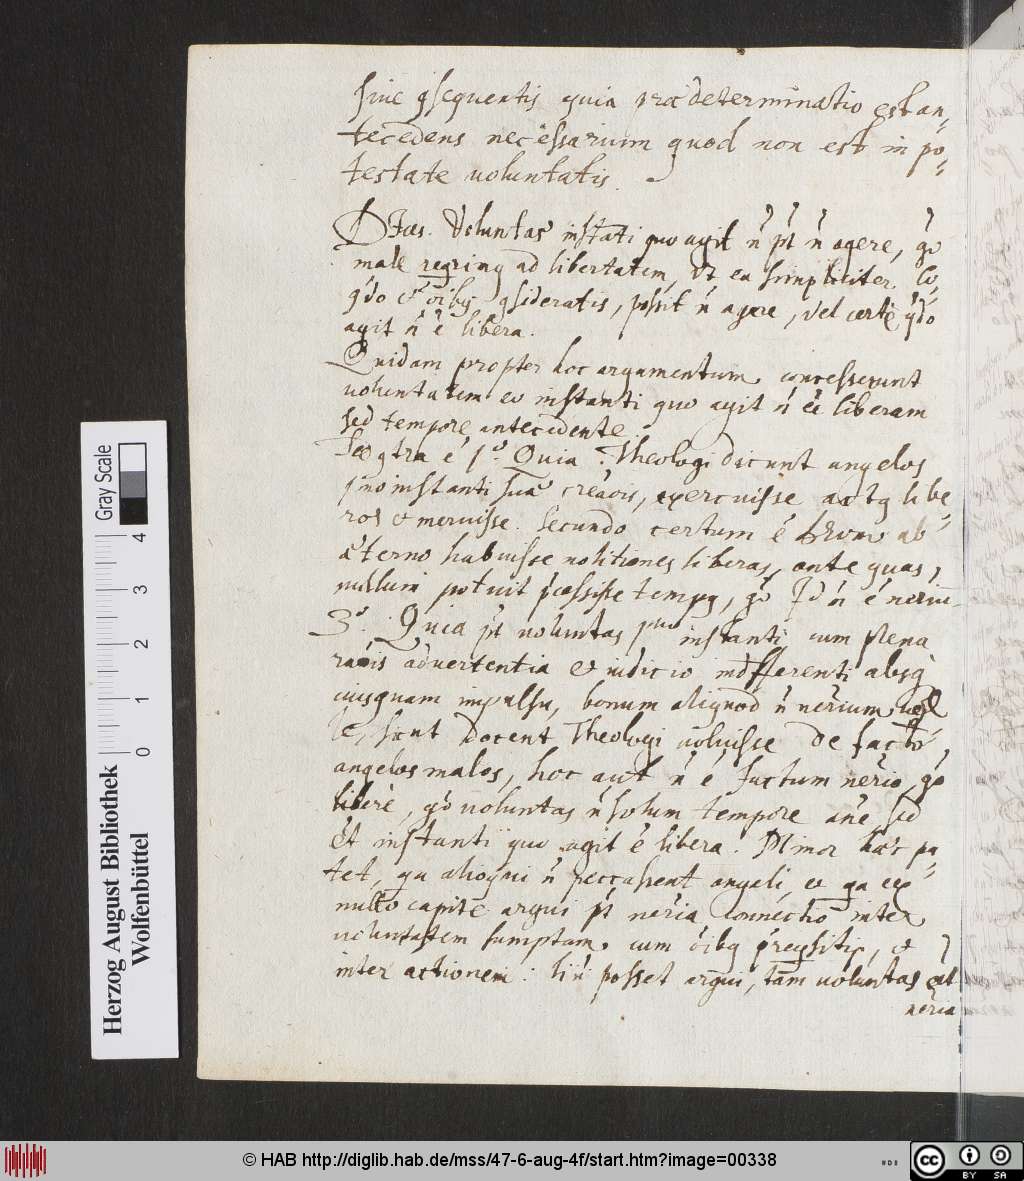 sive qsequentis quia praedeterminatio est an=
tecedens necessarium quod non est in po=
testate voluntatis.
Dices. Voluntas instati quo agit n̄ pt n̄ agere, go
male reqring ad libertatem, ut ea simpliciter.
qdo et oibq qsideratis, possit n̄ agere, vel certe qdo
agit n̄ ē libera.
Quidam propter hoc argumentum concesserunt
voluntatem eo instanti quo agit n̄ eē liberam
sed tempore antecedente.
Sed qtra ē 1º. Quia Theologi dicunt angelos
pmo instanti suae creaōis, exercuisse actq libe=
ros et meruisse. Secundo certum ē Deum ab
aeterno habuisse volitiones liberas, ante quas,
nullum potuit pcessisse tempq, go
3º. Quia pt voluntas pmo instanti cum plena
raōnis advertentia et iudicio indifferenti absq
cuiusquam impulsu, bonum aliquod n̄ nērium vel=
le, sicut docent Theologi voluisse de facto
angelos malos, hoc aut n̄ ē factum nērio, go
liberē, go voluntas n̄ solum tempore anē sed
et instanti quo agit ē libera. Minor haec pa=
tet, qa alioqui n̄ peccassent angeli, et qa ex
nullo capite argui pt nēria connectio inter
voluntatem sumptam cum oibq preqsitis, et
inter actionem: Si n̄ posset argui, tam voluntas
nēria
Herzog August Bibliothek
Wolfenbüttel
Gray Scale
0 1 2 3 4
© HAB http://diglib.hab.de/mss/47-6-aug-4f/start.htm?image=00338
cc BY SA